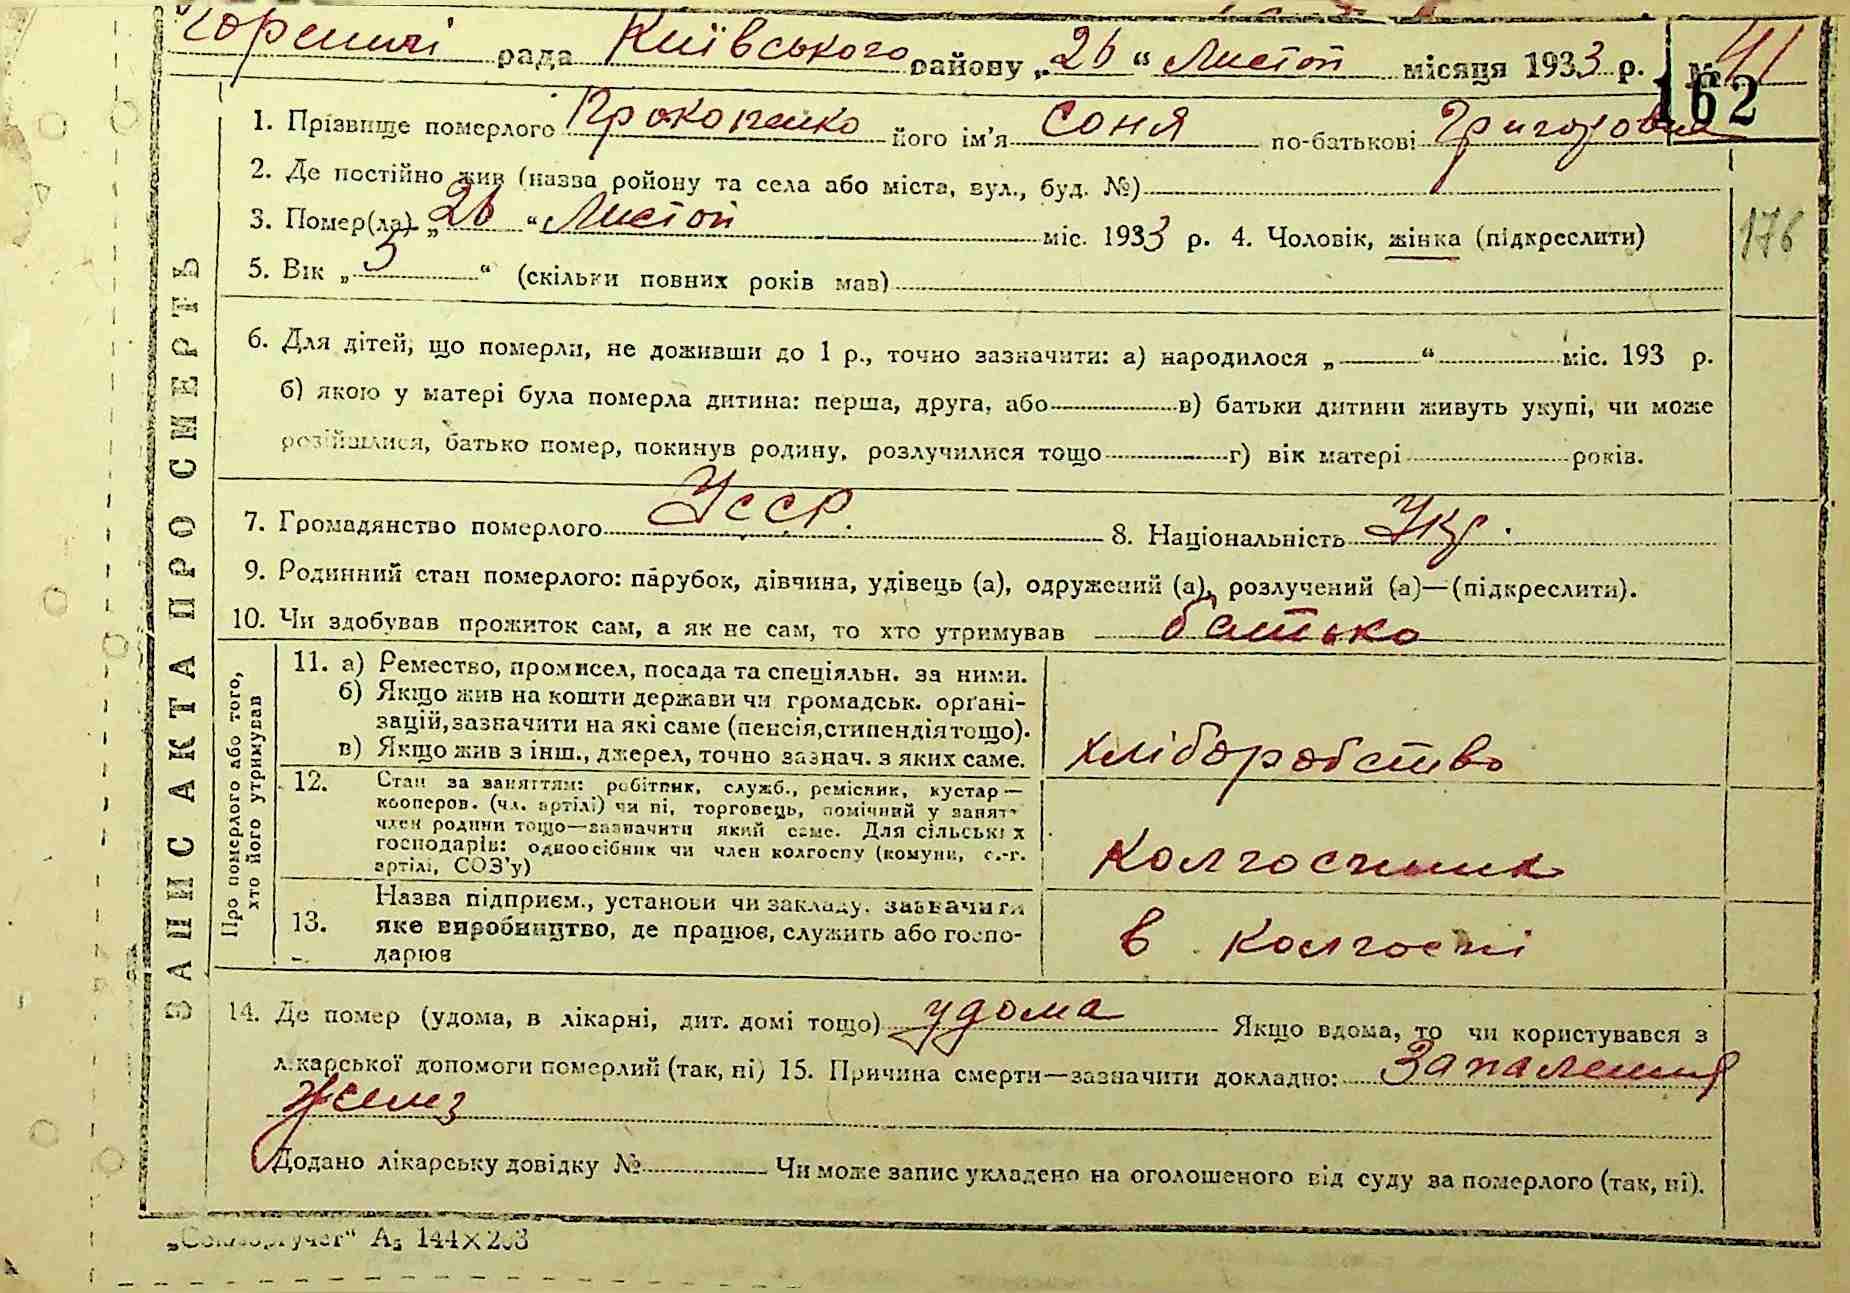 Гореничі рада Київського району „26“ Листоп місяця 1933 р. № 41
162
1. Прізвище померлого Прокопенко його ім'я Соня по-батькові Григоровна
2. Де постійно жив (назва ройону та села або міста, вул., буд. №)
3. Помер(ла) „26“ Листоп міс. 1933 р. 4. Чоловік, жінка (підкреслити)
176
5. Вік „3“ (скільки повних років мав)
6. Для дітей, що померли, не доживши до 1 р., точно зазначити: а) народилося „ “ міс. 193 р.
б) якою у матері була померла дитина: перша, друга, або в) батьки дитини живуть укупі, чи може
розійшлися, батько помер, покинув родину, розлучилися тощо г) вік матері років.
7. Громадянство померлого УССР. 8. Національність Укр.
9. Родинний стан померлого: парубок, дівчина, удівець (а), одружений (а), розлучений (а)—(підкреслити).
10. Чи здобував прожиток сам, а як не сам, то хто утримував батько
11. а) Ремество, промисел, посада та спеціяльн. за ними.
б) Якщо жив на кошти держави чи громадськ. органі-
зацій, зазначити на які саме (пенсія, стипендія тощо).
в) Якщо жив з інш., джерел, точно зазнач. з яких саме.
хліборобство
12. Стан за заняттям: робітник, служб., ремісник, кустар—
кооперов. (чл. артілі) чи ні, торговець, помічний у занят
член родини тощо—зазначити який саме. Для сільських
господарів: одноосібник чи член колгоспу (комуни, с.-г.
артілі, СОЗ'у)
колгоспник
13. Назва підприєм., установи чи закладу, зазначити
яке виробництво, де працює, служить або госпо-
дарює
в колгоспі
14. Де помер (удома, в лікарні, дит. домі тощо) удома Якщо вдома, то чи користувався з
лікарської допомоги померлий (так, ні) 15. Причина смерти—зазначити докладно: Запалення
Додано лікарську довідку № Чи може запис укладено на оголошеного від суду за померлого (так, ні).
„Союзоргучет“ А5 144×203
ЗАПИС АКТА ПРО СМЕРТЬ
Про померлого або того,
хто його утримував